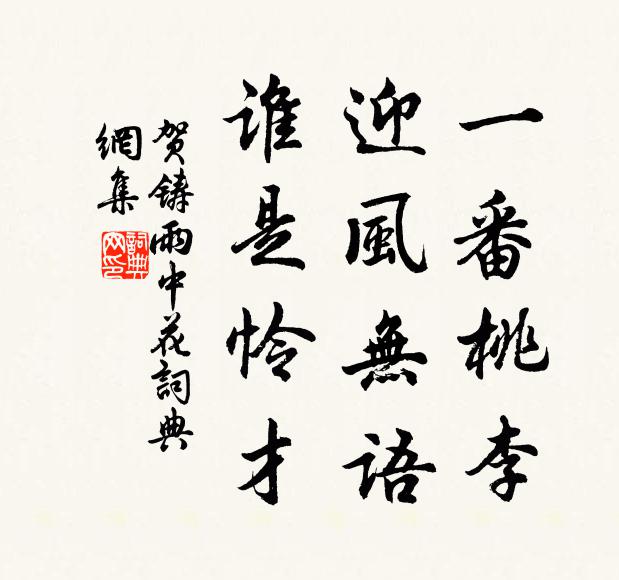 一番桃李
迎風無語
谁是怜才
贺鑄雨中花詞典
網集
詞典
网印